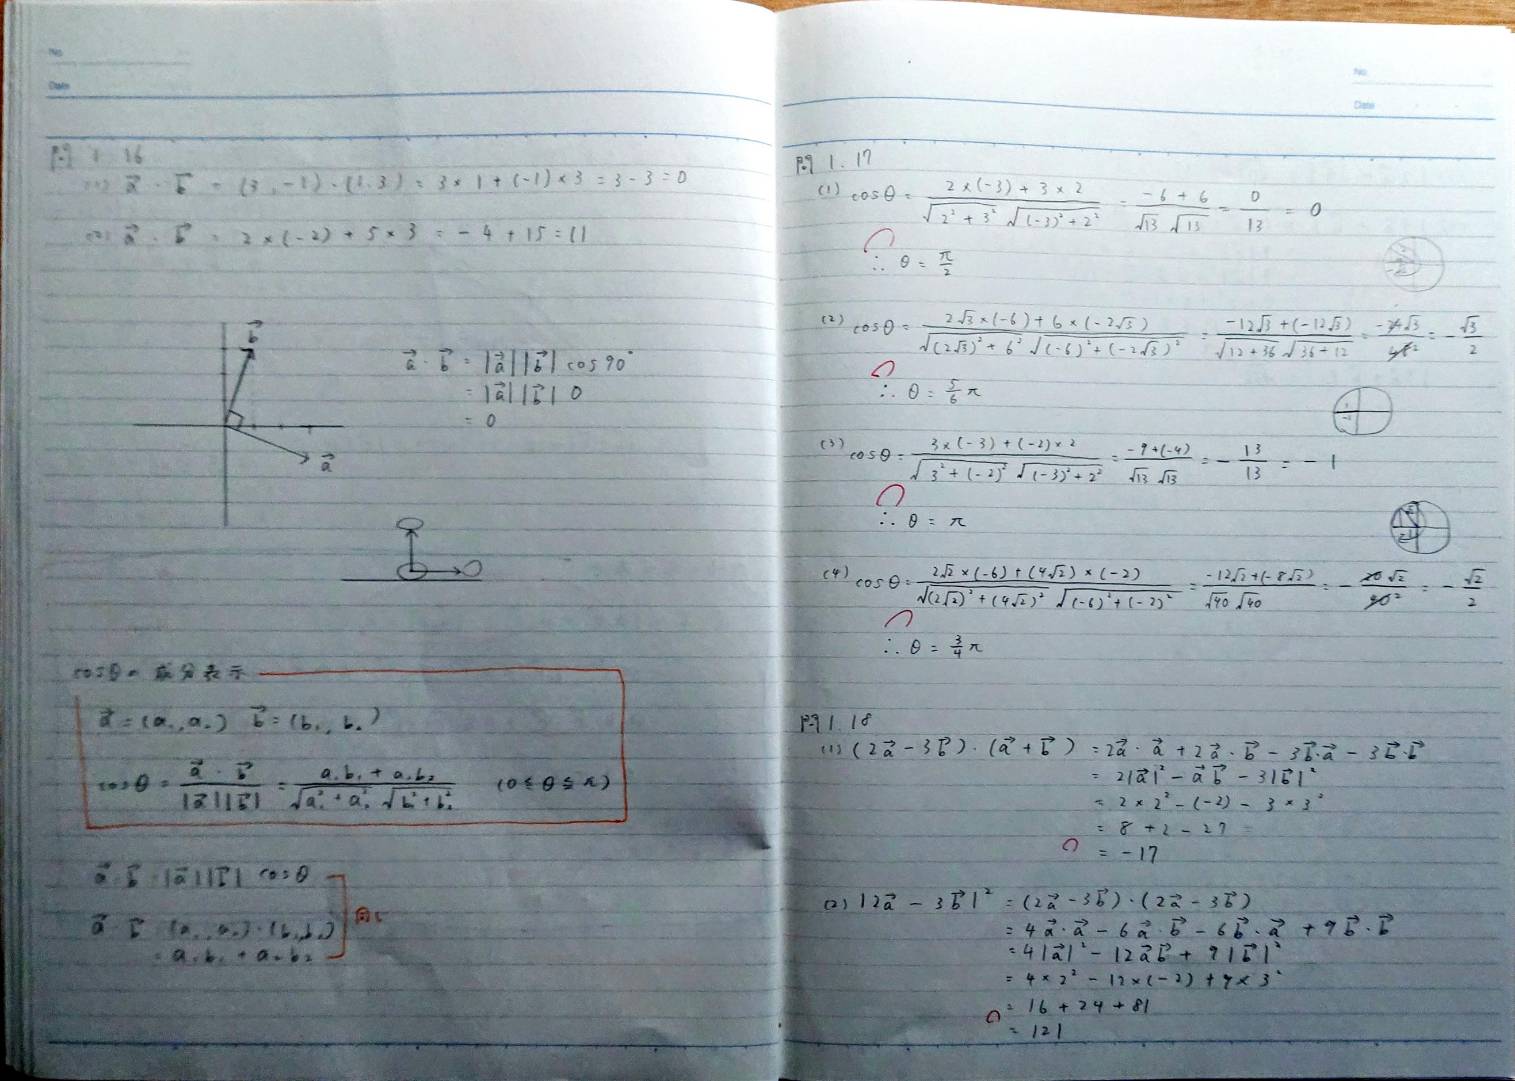 No.
Date
問 1. 16
(1) a⃗ · b⃗ = (3, -1) · (1. 3) = 3 × 1 + (-1) × 3 = 3 - 3 = 0
(2) a⃗ · b⃗ = 2 × (-2) + 5 × 3 = - 4 + 15 = 11
b⃗
a⃗
a⃗ · b⃗ = |a⃗| |b⃗| cos 90°
= |a⃗| |b⃗| 0
= 0
cosθの 成分表示
a⃗ = (a₁, a₂) b⃗ = (b₁, b₂)
cosθ = a⃗ · b⃗ / |a⃗||b⃗| = a₁b₁ + a₂b₂ / √a₁² + a₂² √b₁² + b₂² (0 ≦ θ ≦ π)
a⃗ · b⃗ = |a⃗||b⃗| cosθ
同じ
a⃗ · b⃗ = (a₁, a₂) · (b₁, b₂)
= a₁b₁ + a₂b₂
No.
Date
問 1. 17
(1) cosθ = 2 × (-3) + 3 × 2 / √2² + 3² √(-3)² + 2² = -6 + 6 / √13 √13 = 0 / 13 = 0
∴ θ = π/2
(2) cosθ = 2√3 × (-6) + 6 × (-2√3) / √(2√3)² + 6² √(-6)² + (-2√3)² = -12√3 + (-12√3) / √12 + 36 √36 + 12 = -24√3 / 48 2 = - √3 / 2
∴ θ = 5/6 π
(3) cosθ = 3 × (-3) + (-2) × 2 / √3² + (-2)² √(-3)² + 2² = -9 + (-4) / √13 √13 = - 13 / 13 = - 1
∴ θ = π
(4) cosθ = 2√2 × (-6) + (4√2) × (-2) / √(2√2)² + (4√2)² √(-6)² + (-2)² = -12√2 + (-8√2) / √40 √40 = - 20 √2 / 40 2 = - √2 / 2
∴ θ = 3/4 π
問 1. 18
(1) (2a⃗ - 3b⃗) · (a⃗ + b⃗) = 2a⃗ · a⃗ + 2a⃗ · b⃗ - 3b⃗ · a⃗ - 3b⃗ · b⃗
= 2|a⃗|² - a⃗ b⃗ - 3|b⃗|²
= 2 × 2² - (-2) - 3 × 3²
= 8 + 2 - 27
= -17
(2) |2a⃗ - 3b⃗|² = (2a⃗ - 3b⃗) · (2a⃗ - 3b⃗)
= 4a⃗ · a⃗ - 6a⃗ · b⃗ - 6b⃗ · a⃗ + 9b⃗ · b⃗
= 4|a⃗|² - 12a⃗b⃗ + 9|b⃗|²
= 4 × 2² - 12 × (-2) + 9 × 3²
= 16 + 24 + 81
= 121